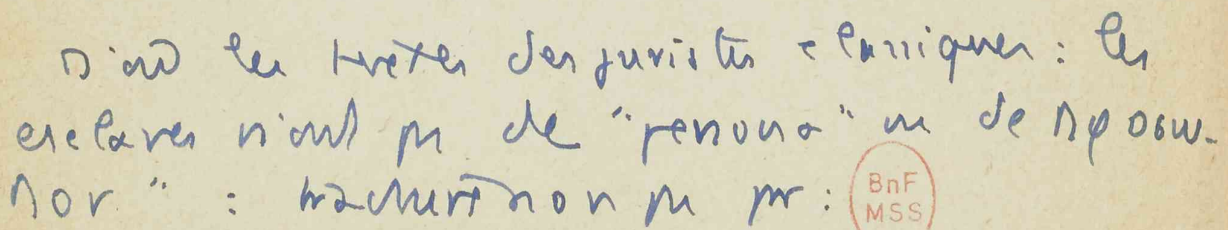 D'où les textes des juristes classiques : les
esclaves n'ont pas de "persona" ou de προσω-
πον" : traduction pas par :
BnF
MSS